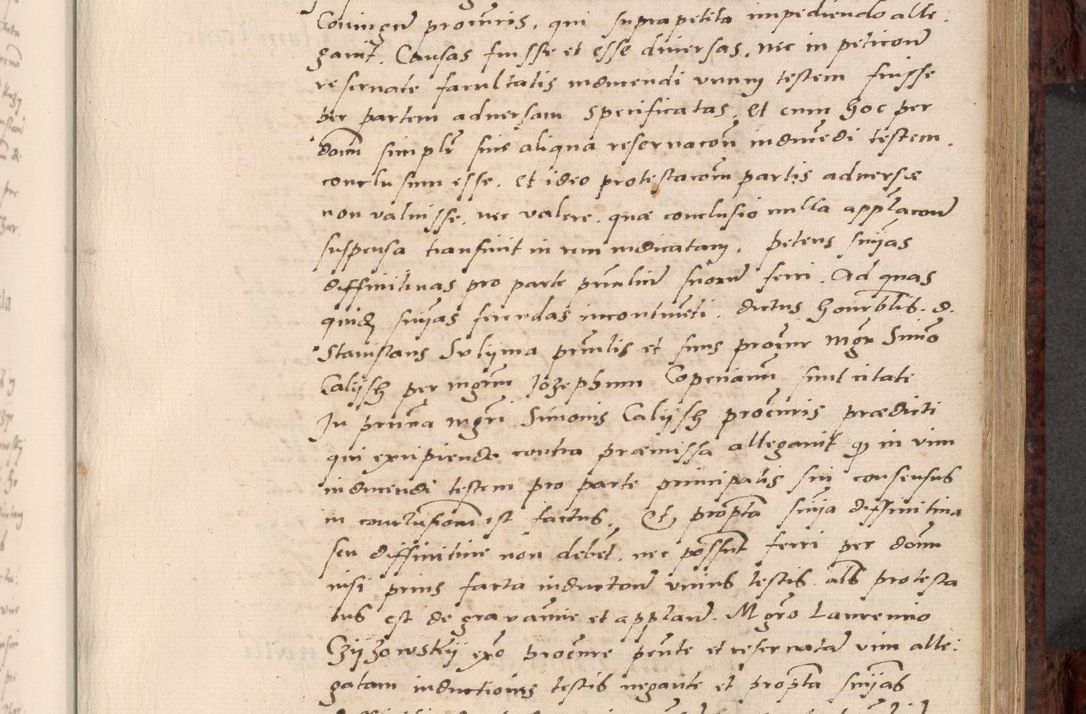 procuris, qui supra petita impediendo alle:
gavit. Causas fuisse et esse diversas, nec in peticone
reservate facultatis inducendi unum testem fuisse
per partem adversam specificatas, Et cum hoc per
dnum simplr sine aliqua reservacone inducendi testem.
conclusum esse. Et ideo protestacom partis adversae
non valuisse, nec valere, quae conclusio nulla appellacone
suspensa transivit in rem iudicatam, petens snias
diffinitivas pro parte prnlium suorum ferri. Ad quas
quidem snias ferendas incontinenti. dictus honorblis. d.
Stanislaus Sulijma prnlis et suus procur mgr Simo
Calijsh per mgrum Jozephum sunt citati
In prnia mgri Simonis Calijsh procuris praedicti
qui excipiendo contra praemissa allegavit qd in vim
inducendi testem pro parte principalis sui consensus
in conclusionem est factus. Et propta snia diffinitiva
seu diffinitive non debet, nec possunt ferri per dnum
nisi prius facta inductone unius testis als protesta
tus est de gravamine et appland. Mgro Laurencio
Czijzowskij ex procure pnte et reservatam vim alle:
gatam inductionis testis negante et propta snias